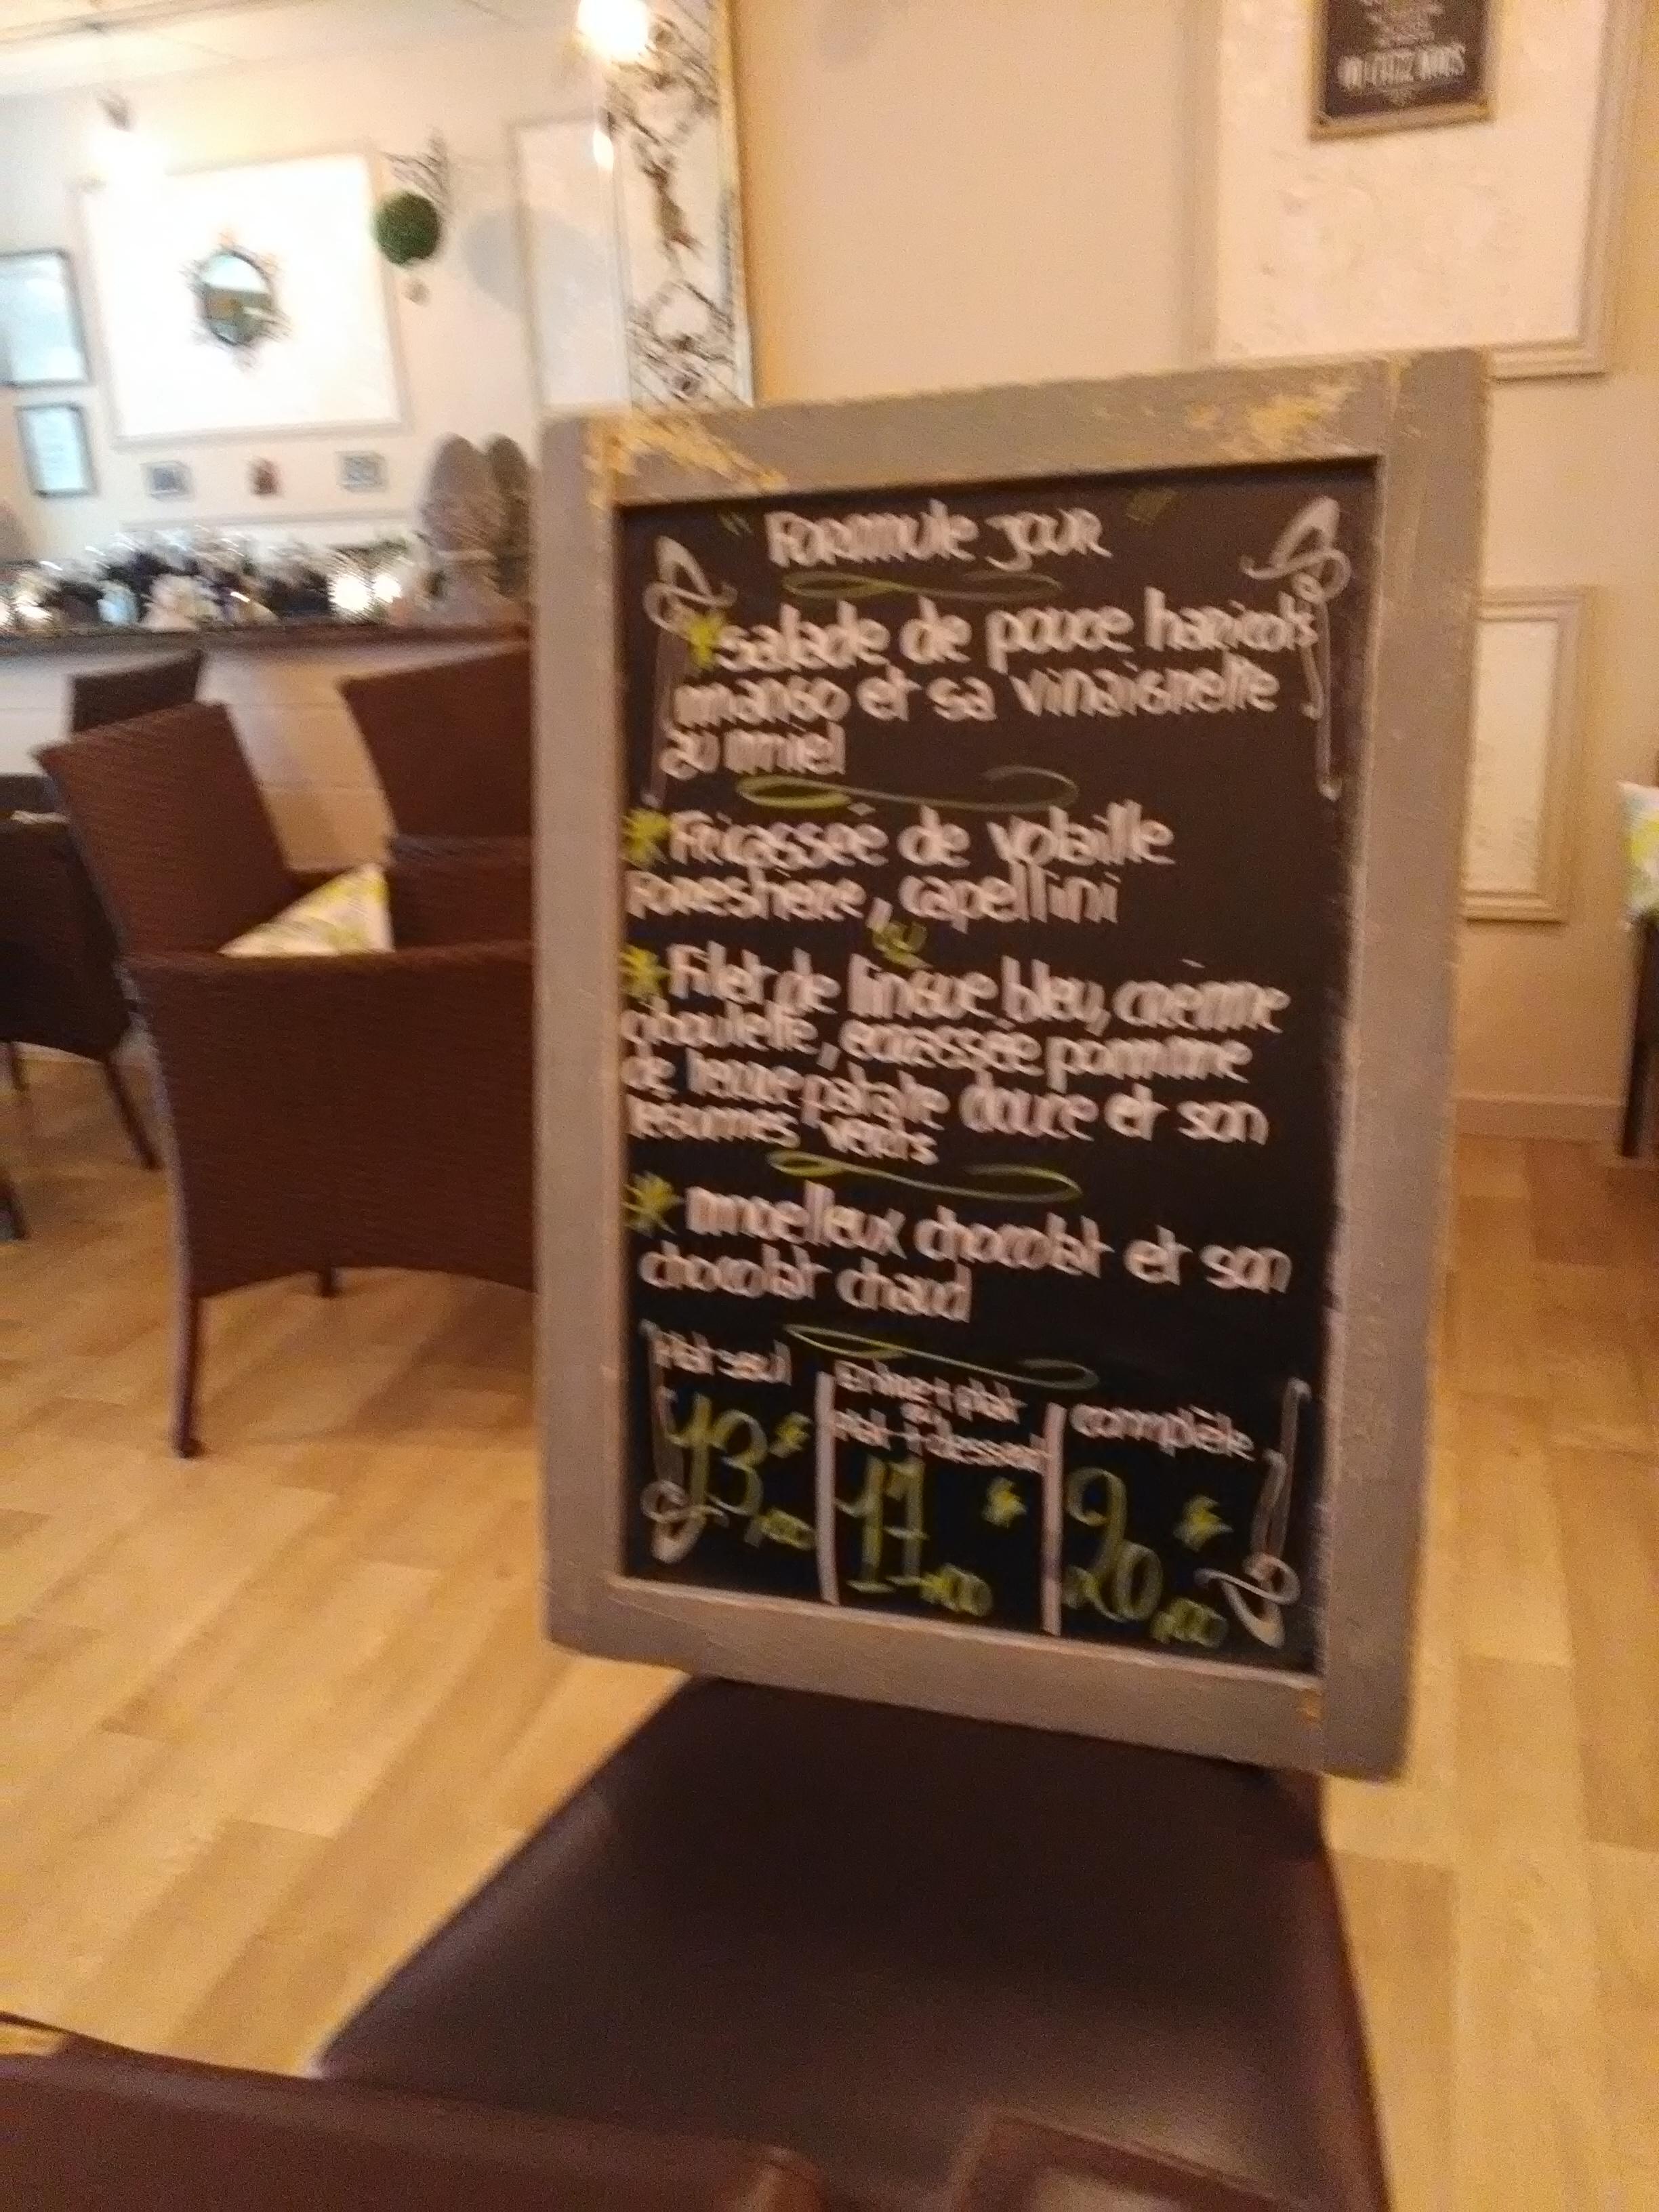 OU CHEZ NOUS
Formule jour
salade de pouce haricots
mango et sa vinaigrette
au miel
Fricassée de volaille
Forestière, capellini
ou
Filet de lingue bleu, crème
ciboulette, écrassée pomme
de terre patate douce et son
legumes verts
moelleux chocolat et son
chocolat chaud
Plat seul
13,00
Entrée + plat
ou
Plat + dessert
17,00
complète
20,00